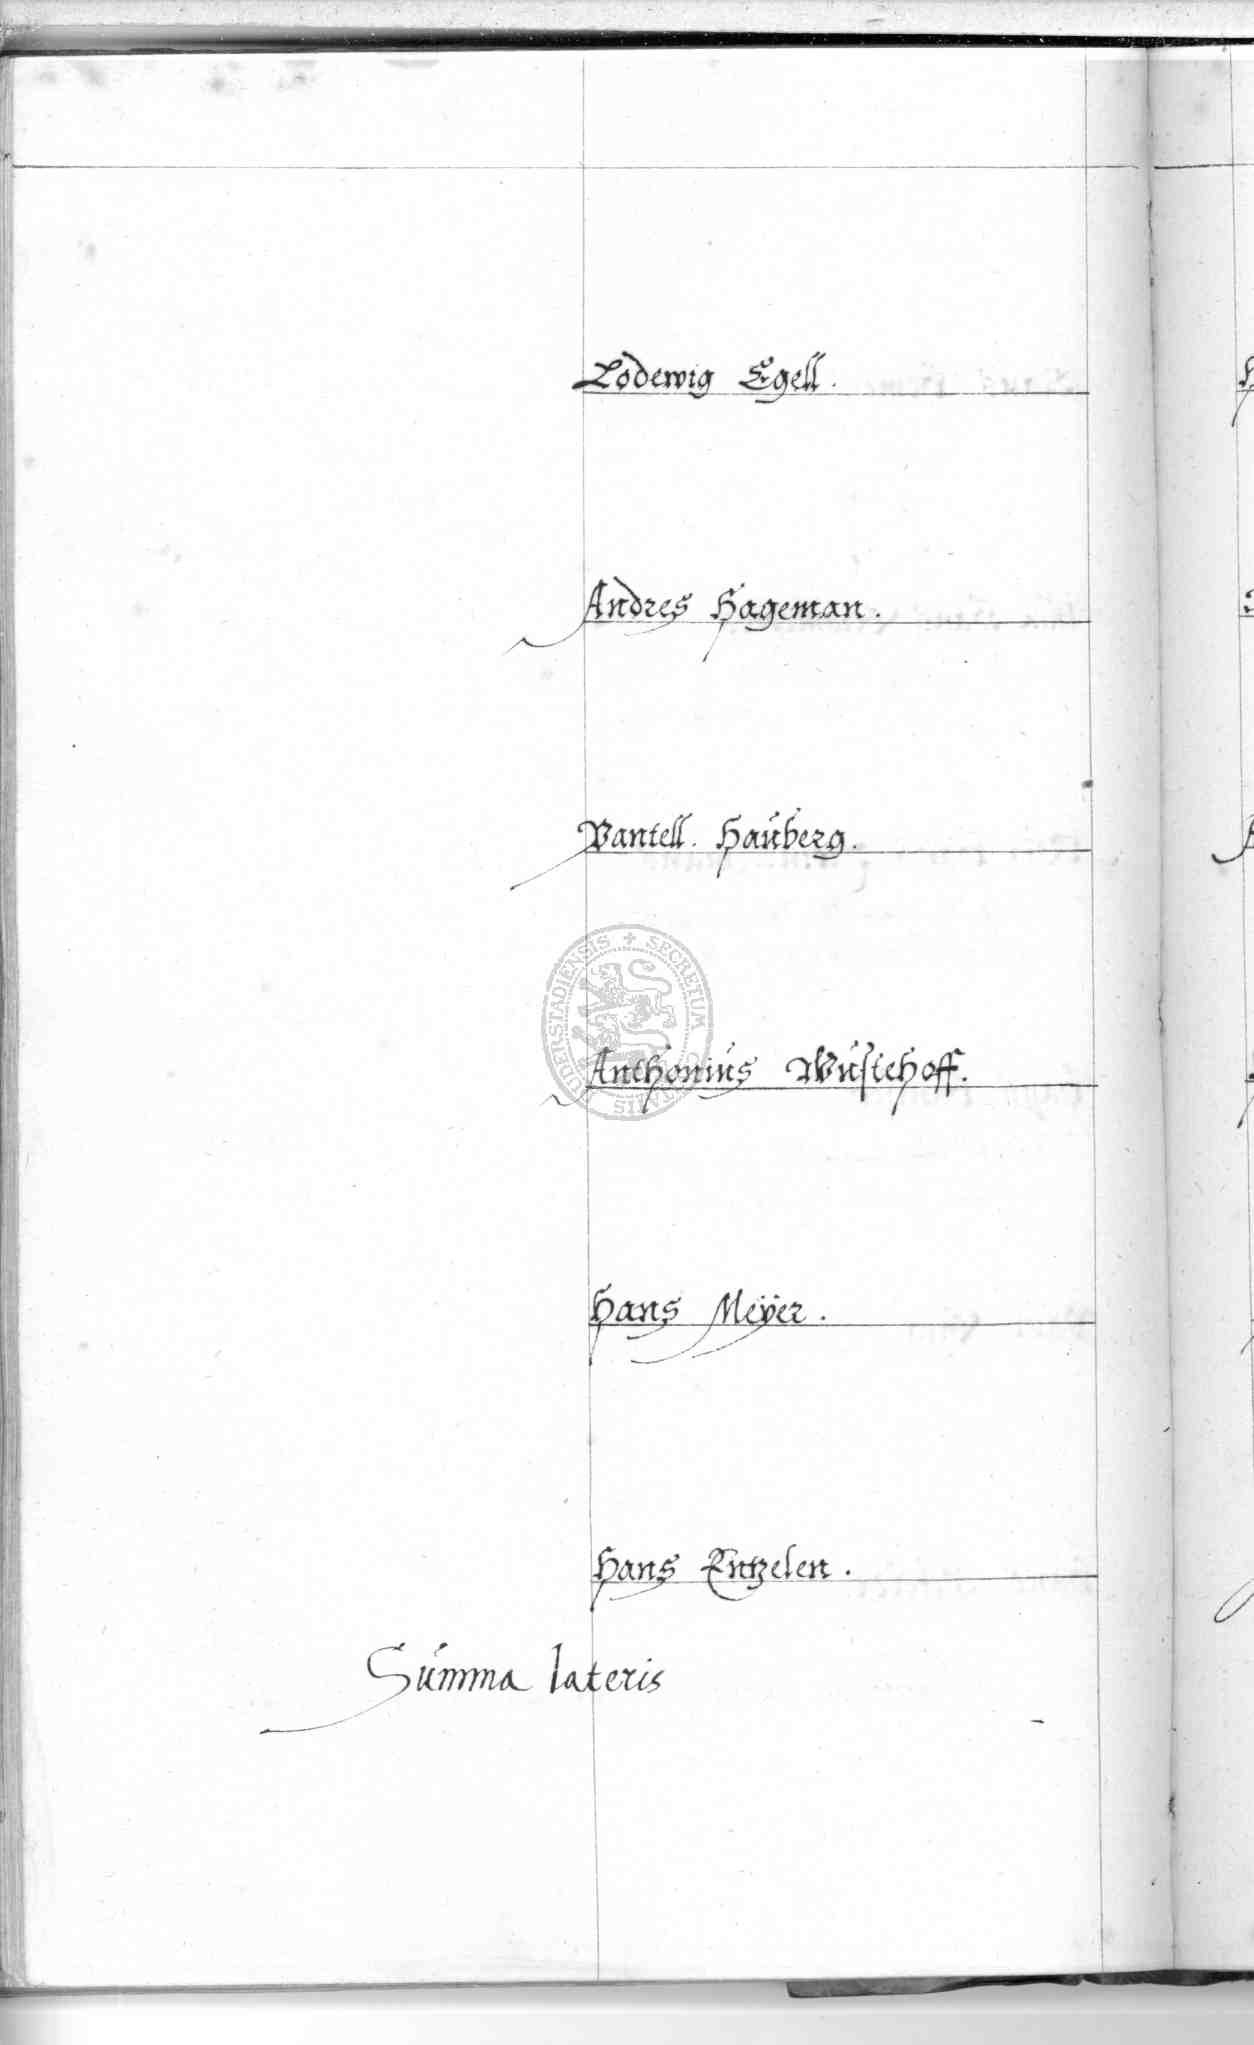 Lodewig Egell.
Andres Hageman.
Pantell. Hauberg.
Anthonius Wustehoff.
Hans Meÿer.
Hans Entzelen.
Summa lateris
-
SECRETUM